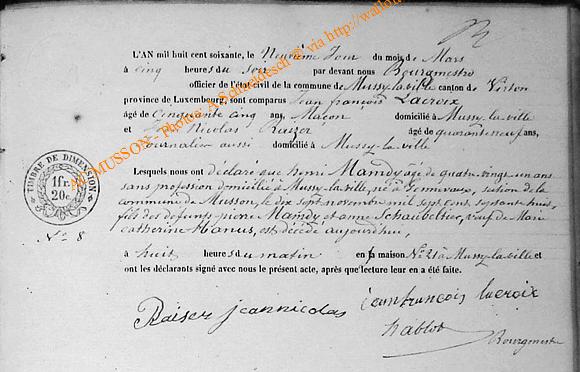 L'AN mil huit cent soixante, le Neuvième Jour du mois de Mars
à Cinq heures du Soir par devant nous Bourgmestre
officier de l'état civil de la commune de Mussy-la-ville canton de Virton
province de Luxembourg, ont comparus Jean françois Lacroix
âgé de Cinquante cinq ans, Maçon domicilié à Mussy-la-ville
et Jean Nicolas Raizer âgé de quarante neuf ans,
Journalier aussi domicilié à Mussy-la-ville
Lesquels nous ont déclaré que henri Mamdy âgé de quatre vingt un ans
sans profession domicilié à Mussy-la-ville, né à Gennevaux, section de la
commune de Musson, le dix sept novembre mil sept cens septante huit,
fils des defunts pierre Mamdy et anne Schaibeltier, veuf de Marie
catherine Hanus, est décédé aujourd'hui,
à huit heures du matin en sa maison No 21 à Mussy-la-ville et
ont les déclarants signé avec nous le présent acte, après que lecture leur en a été faite.
TIMBRE DE DIMENSION
1fr.
20c.
No 8
Raiser jeannicolas
jeanfrancois lacroix
hablot
Bourgmestre
MUSSON - Photos: A.Schackdesch © via http://wallon